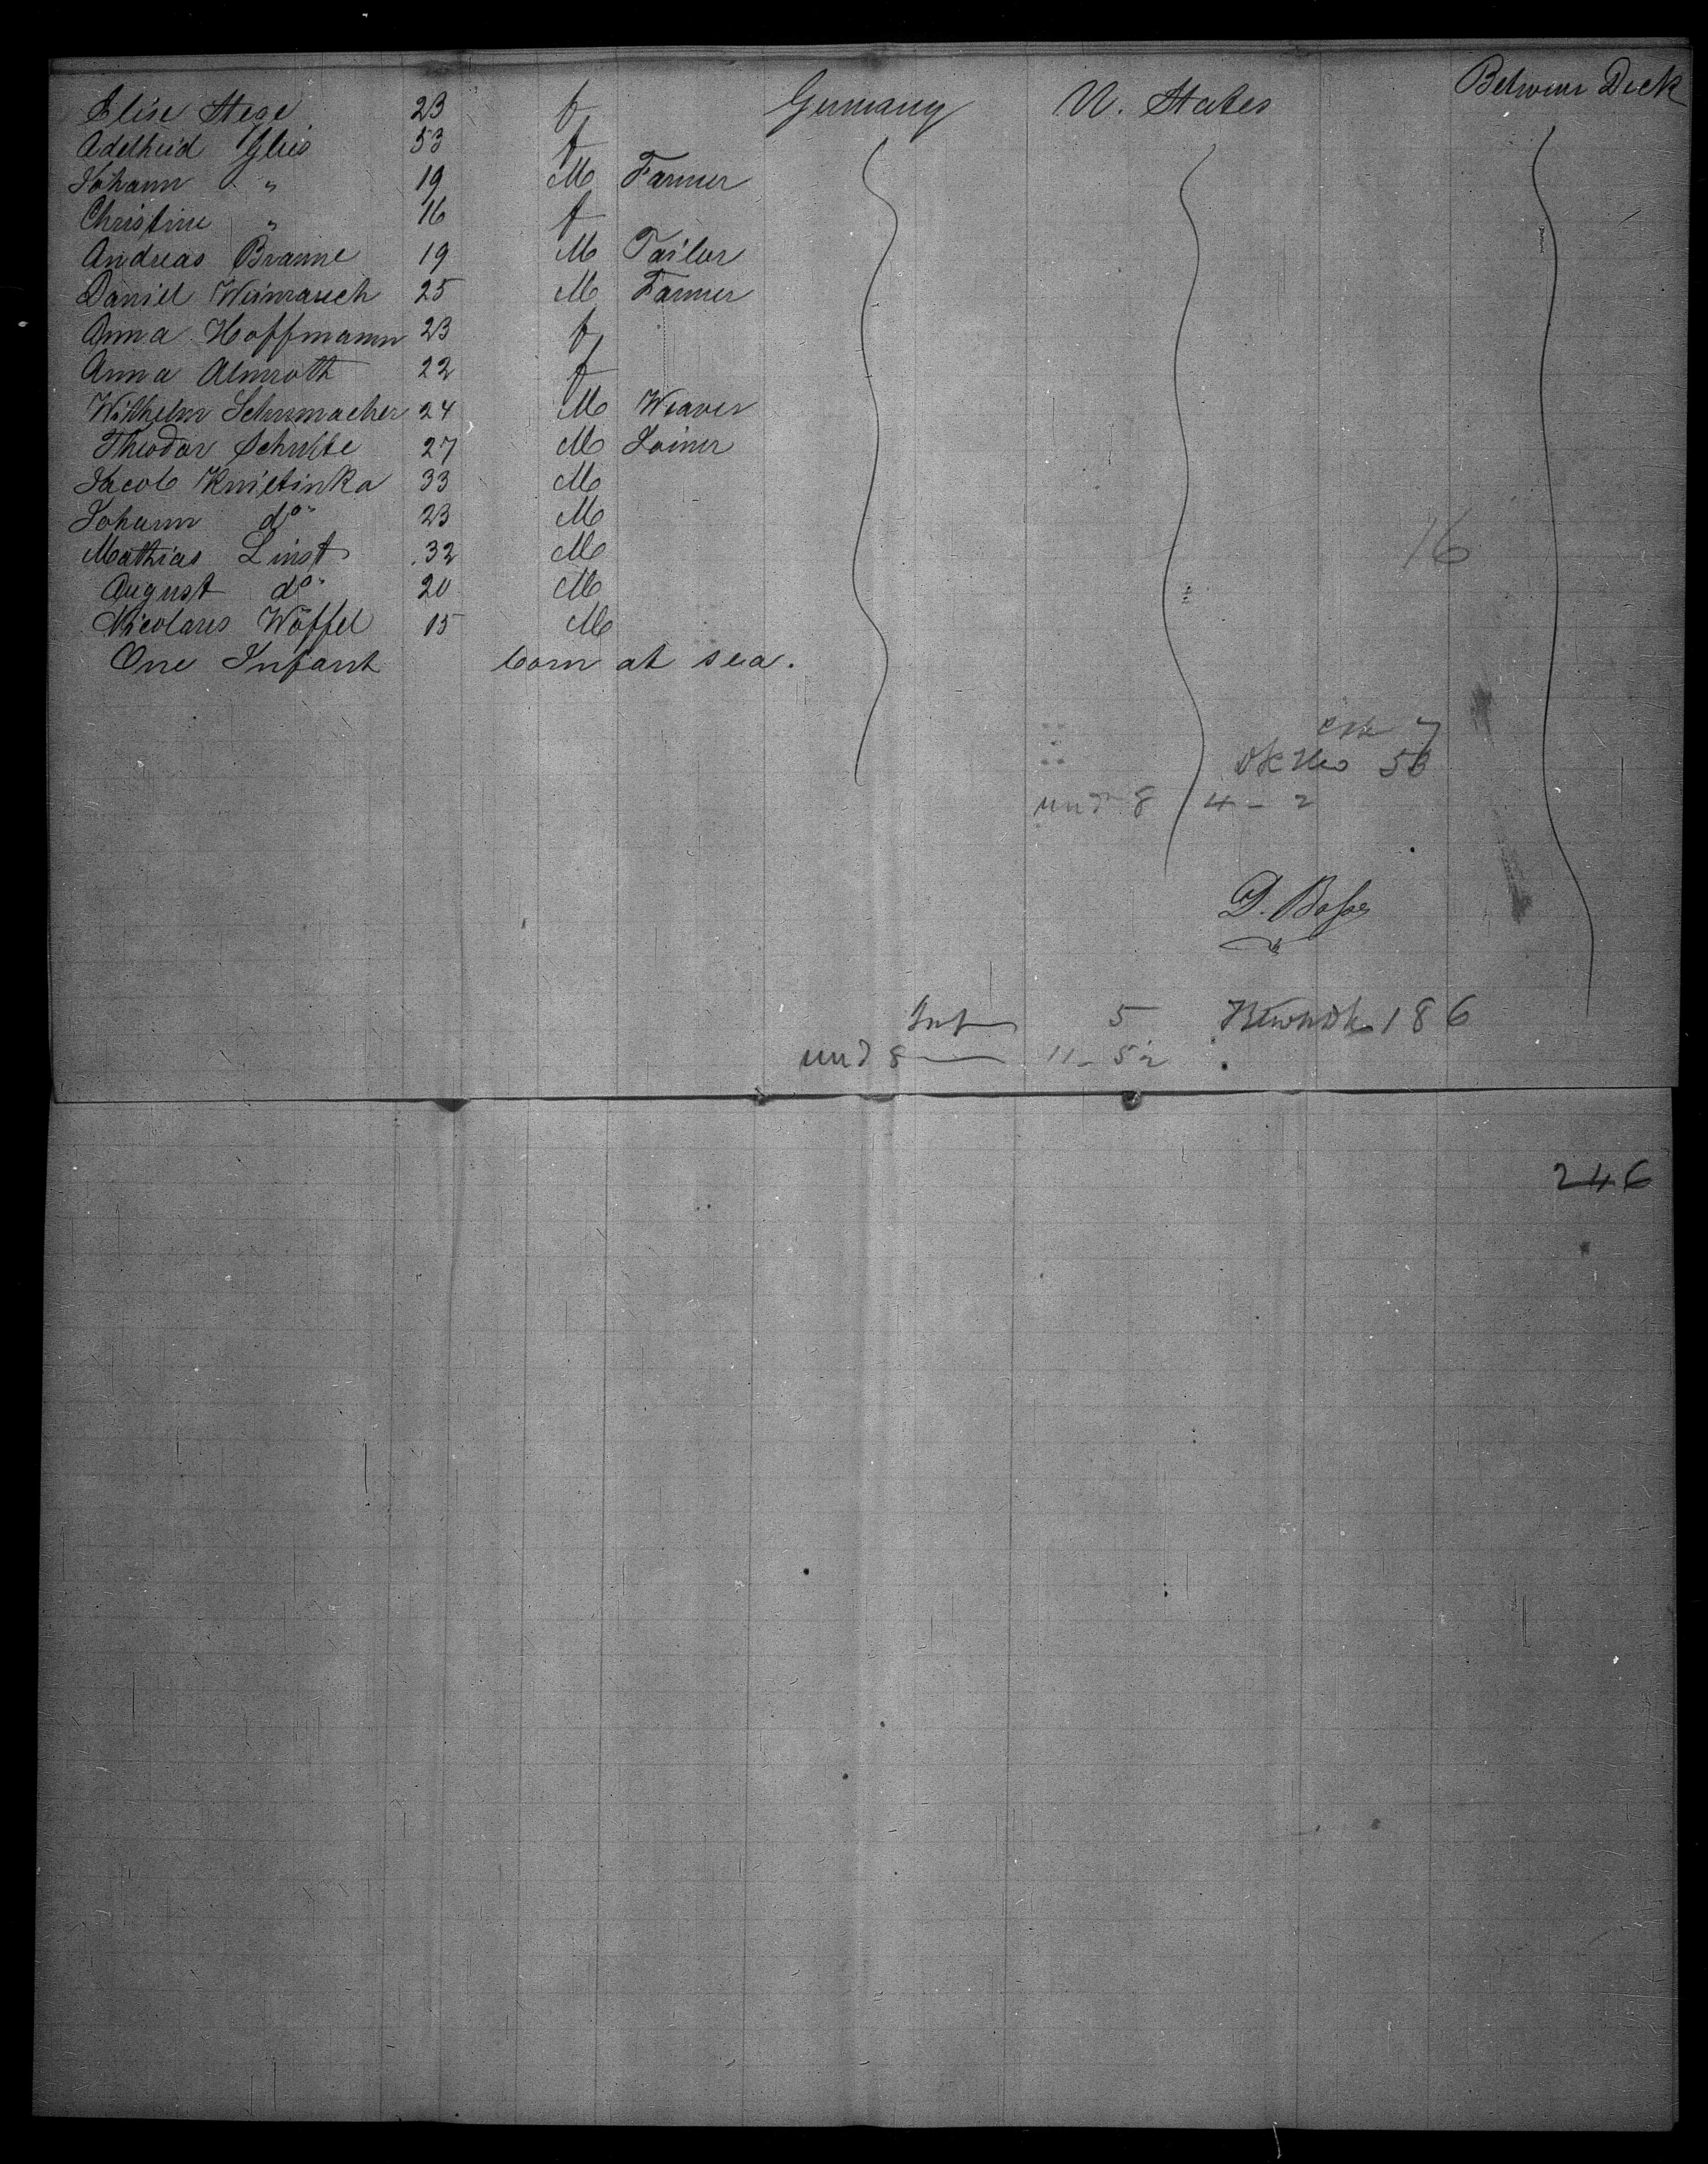 Elise Stege 23 f Germany U. States Between Deck
Adelheid Glies 53 f
Johann " 19 M Farmer
Christine " 16 f
Andreas Braune 19 M Tailor
Daniel Weinrauch 25 M Farmer
Anna Hoffmann 23 f
Anna Almroth 22 f
Wilhelm Schumacher 24 M Weaver
Theodor Schulte 27 M Joiner
Jacob Knietinka 33 M
Johann do 23 M
Mathias Linst 32 M
August do 20 M
Nicolaus Wöffel 15 M
One Infant born at sea.
16
7
und 8 4 - 2
Inf 5 186
und 8 11 - 52
246